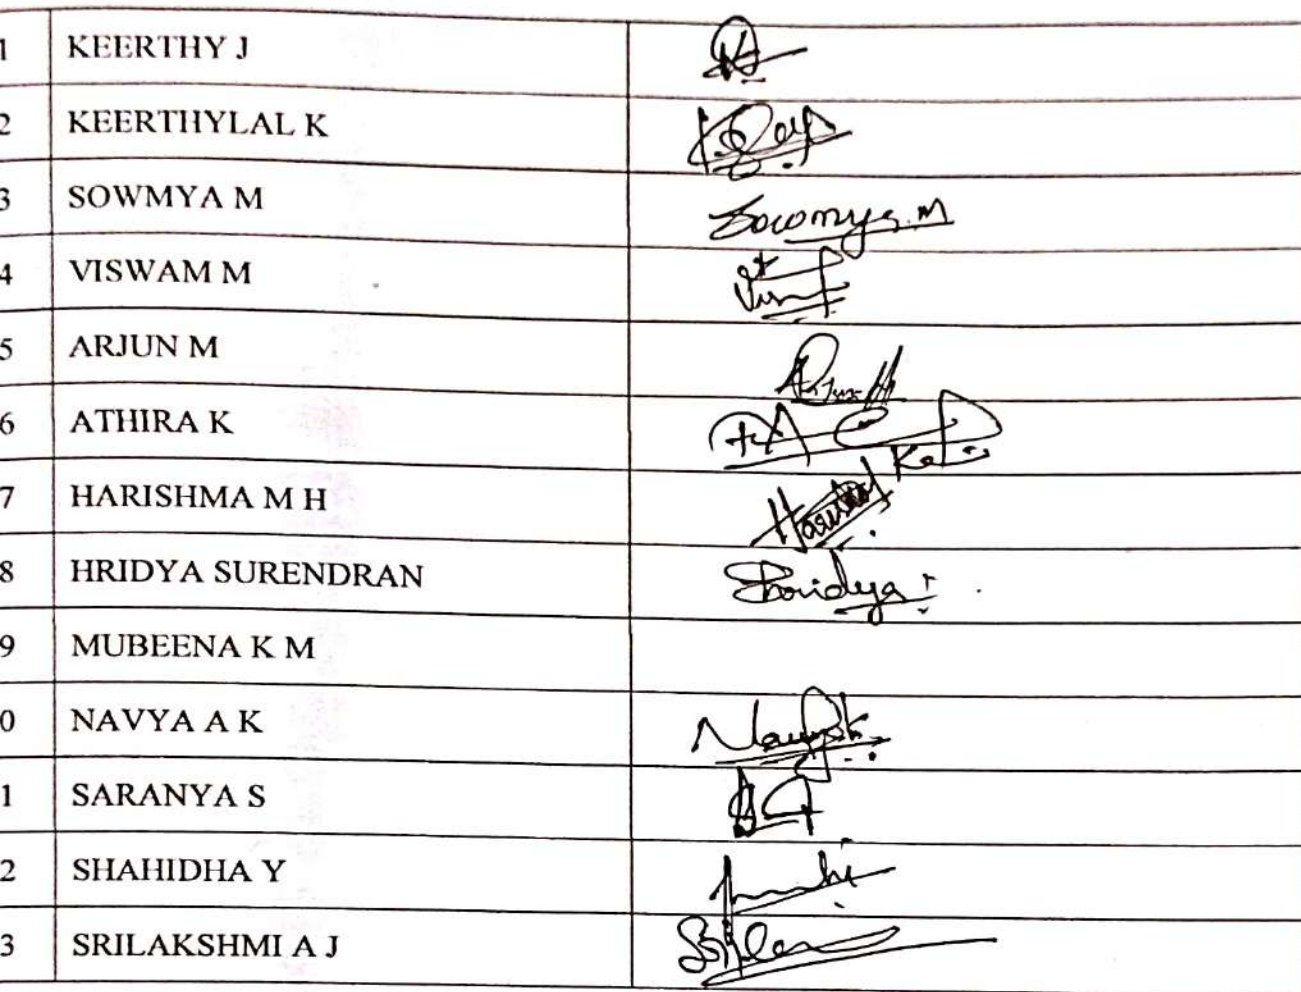 1 KEERTHY J
2 KEERTHYLAL K
3 SOWMYA M Sowmya.M
4 VISWAM M
5 ARJUN M Arjun M
6 ATHIRA K
7 HARISHMA M H
8 HRIDYA SURENDRAN Hridya
9 MUBEENA K M
0 NAVYA A K
1 SARANYA S
2 SHAHIDHA Y
3 SRILAKSHMI A J